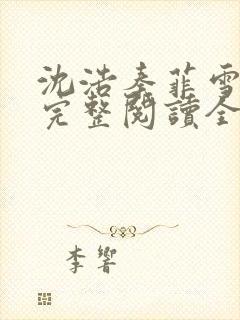 沈浩秦菲雪
完整閱讀全
李響